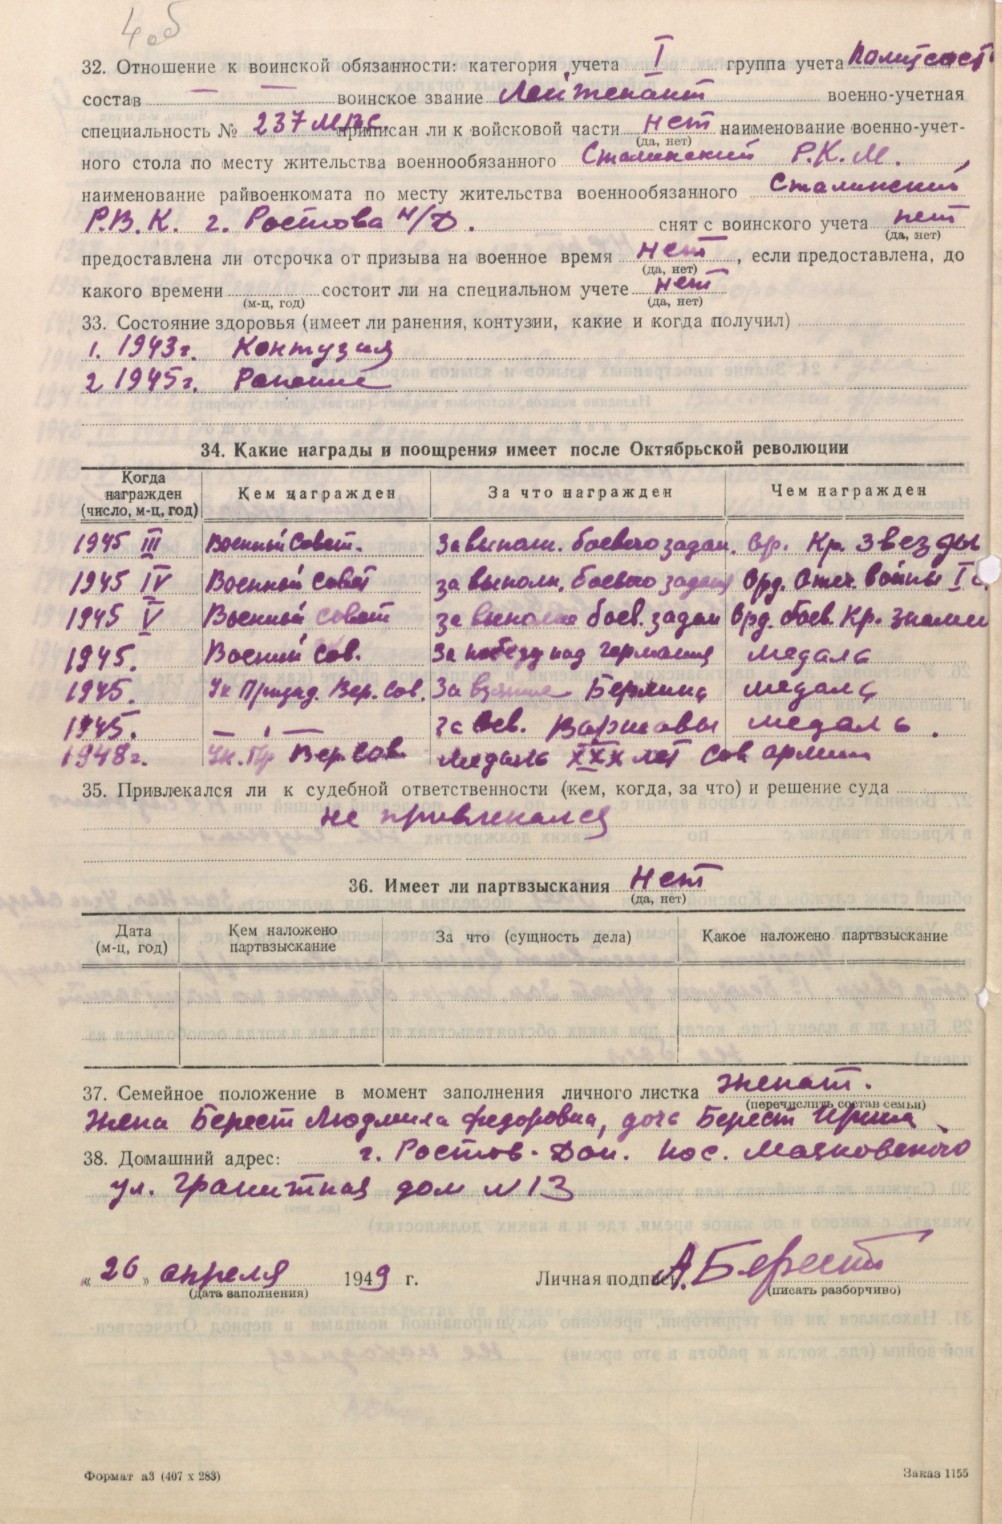 4об
32. Отношение к воинской обязанности: категория учета I группа учета Политсост
состав — — воинское звание Лейтенант военно-учетная
специальность № 237 приписан ли к войсковой части нет наименование военно-учет-
(да, нет)
ного стола по месту жительства военнообязанного Сталинский Р.К.М.,
наименование райвоенкомата по месту жительства военнообязанного Сталинский
Р.В.К. г. Ростова н/Д. снят с воинского учета нет
(да, нет)
предоставлена ли отсрочка от призыва на военное время нет, если предоставлена, до
(да, нет)
какого времени состоит ли на специальном учете нет
(м-ц, год) (да, нет)
33. Состояние здоровья (имеет ли ранения, контузии, какие и когда получил)
1. 1943г. Контузия
2 1945г. Ранение
34. Какие награды и поощрения имеет после Октябрьской революции
Когда награжден (число, м-ц, год) Кем награжден За что награжден Чем награжден
1945 III Военный Совет. За выполн. боевого задан. Ор. Кр. Звезды
1945 IV Военный Совет за выполн. боевого задания Орд. Отеч. войны I с.
1945 V Военный совет за выполне боев. задан Орд. боев. Кр. знамени
1945. Военний Сов. За победу над германия медаль
1945. Ук Призид. Вер. Сов. За взятие Берлина медаль
1945. — ı — за Осв. Варшавы медаль.
1948г. Ук. Пр Вер. Сов. Медаль XXX лет Сов армии
35. Привлекался ли к судебной ответственности (кем, когда, за что) и решение суда
не привлекался
36. Имеет ли партвзыскания Нет
(да, нет)
Дата (м-ц, год) Кем наложено партвзыскание За что (сущность дела) Какое наложено партвзыскание
37. Семейное положение в момент заполнения личного листка Женат.
(перечислить состав семьи)
Жена Берест Людмила Федоровна, дочь Берест Ирина.
38. Домашний адрес: г. Ростов-Дон. пос. Маяковского
ул. Гранитная дом N 13
«26» апреля 1949 г. Личная подпись А. Берест
(дата заполнения) (писать разборчиво)
Формат а3 (407 х 283) Заказ 1155